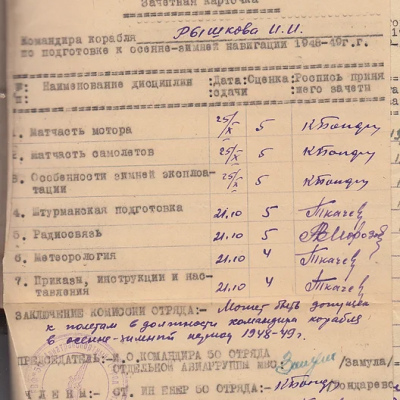 Зачетная карточка
Командира корабля Рышкова И.И.
по подготовке к осенне-зимней навигации 1948-49г.г.
№ Наименование дисциплин Дата сдачи Оценка Роспись приня
п: него зачеты
1. Матчасть мотора 25/X 5
2. Матчасть самолетов 25/X 5
3. Особенности зимней эксплоа-
тации 25/X 5
4. Штурманская подготовка 21.10 5 Ткачев
5. Радиосвязь 21.10 5 Морозов
6. Метеорология 21.10 4 Ткачев
7. Приказы, инструкции и нас-
тавления 21.10 4 Ткачев
ЗАКЛЮЧЕНИЕ КОМИССИИ ОТРЯДА:- Может быть допущен
к полетам в должности командира корабля
в осенне-зимний период 1948-49г.
ПРЕДСЕДАТЕЛЬ:- И.О.КОМАНДИРА 50 ОТРЯДА
ОТДЕЛЬНОЙ АВИАГРУППЫ /Замула/
ЧЛЕНЫ:- СТ. ИНЖЕНЕР 50 ОТРЯДА:-